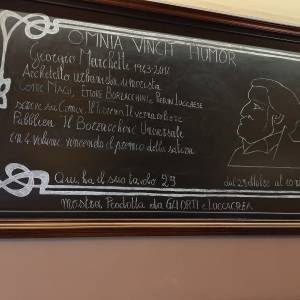 OMNIA VINCIT HUMOR
Giorgio Marchetti 1943-201
Architetto urbanista umorista
Come Magu, Ettore Borzacchini e Perun Lucchese
scrive su Comix, Il Tirreno, Il Vernacoliere
Pubblica Il Borzacchini Universale
in 4 volumi vincendo il premio della satira
Qui, ha il suo tavolo 29
dal 29 ottobre al 10
mostra Prodotta da GLI ORTI e LUCCACREA